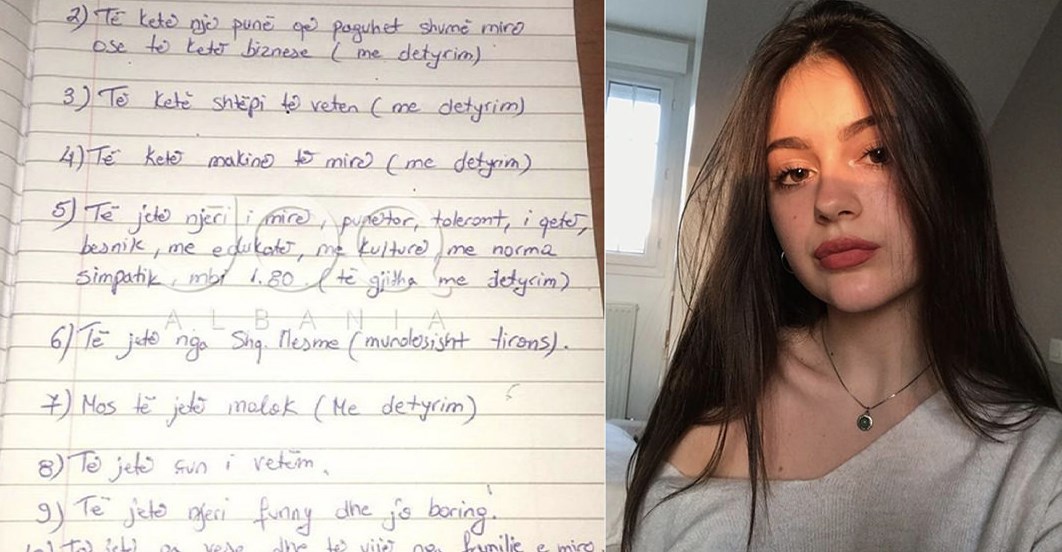 2) Të ketë një punë që paguhet shumë mirë
ose të ketë biznese ( me detyrim)
3) Të ketë shtëpi të veten ( me detyrim)
4) Të ketë makinë të mirë ( me detyrim)
5) Të jetë njeri i mirë, punëtor, tolerant, i qetë,
besnik, me edukatë, me kulturë, me norma
simpatik, mbi 1.80 ( të gjitha me detyrim)
ALBANIA
6) Të jetë nga Shq. Mesme ( mundësisht tirons).
7) Mos të jetë malok ( Me detyrim)
8) Të jetë çun i vetëm.
9) Të jetë njeri funny dhe jo boring.
10) Të jetë pa vese dhe të vijë nga familje e mirë.